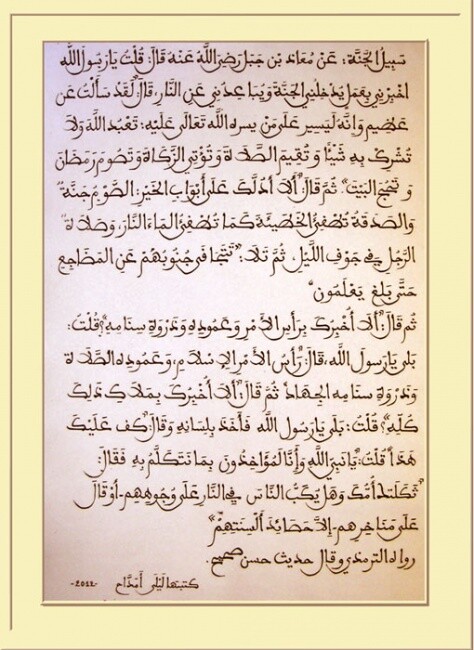 سبيل الجنة: عن معاذ بن جبل رضي الله عنه قال: قلت يا رسول الله
اخبرني بعمل يدخلني الجنة ويباعدني عن النار، قال: لقد سألت عن
عظيم وإنه ليسير على من يسره الله تعالى عليه: تعبد الله ولا
تشرك به شيئا وتقيم الصلاة وتؤتي الزكاة وتصوم رمضان
وتحج البيت". ثم قال: ألا أدلك على أبواب الخير: الصوم جنة
والصدقة تطفئ الخطيئة كما تطفئ الماء النار، وصلاة
الرجل في جوف الليل. ثم تلا: "تتجافى جنوبهم عن المضاجع
حتى بلغ يعلمون"
ثم قال: ألا أخبرك برأس الأمر وعموده وذروة سنامه؟ قلت:
بلى يا رسول الله، قال: رأس الأمر الإسلام، وعموده الصلاة
وذروة سنامه الجهاد ثم قال: ألا أخبرك بملاك ذلك
كله؟ قلت: بلى يا رسول الله فأخذ بلسانه وقال: كف عليك
هذا قلت: يا نبي الله وإنا لمؤاخذون بما نتكلم به فقال:
"ثكلتك أمك وهل يكب الناس في النار على وجوههم - أو قال
على مناخرهم - إلا حصائد ألسنتهم"
رواه الترمذي وقال حديث حسن صحيح.
كتبها ليلى أمداح -2012-